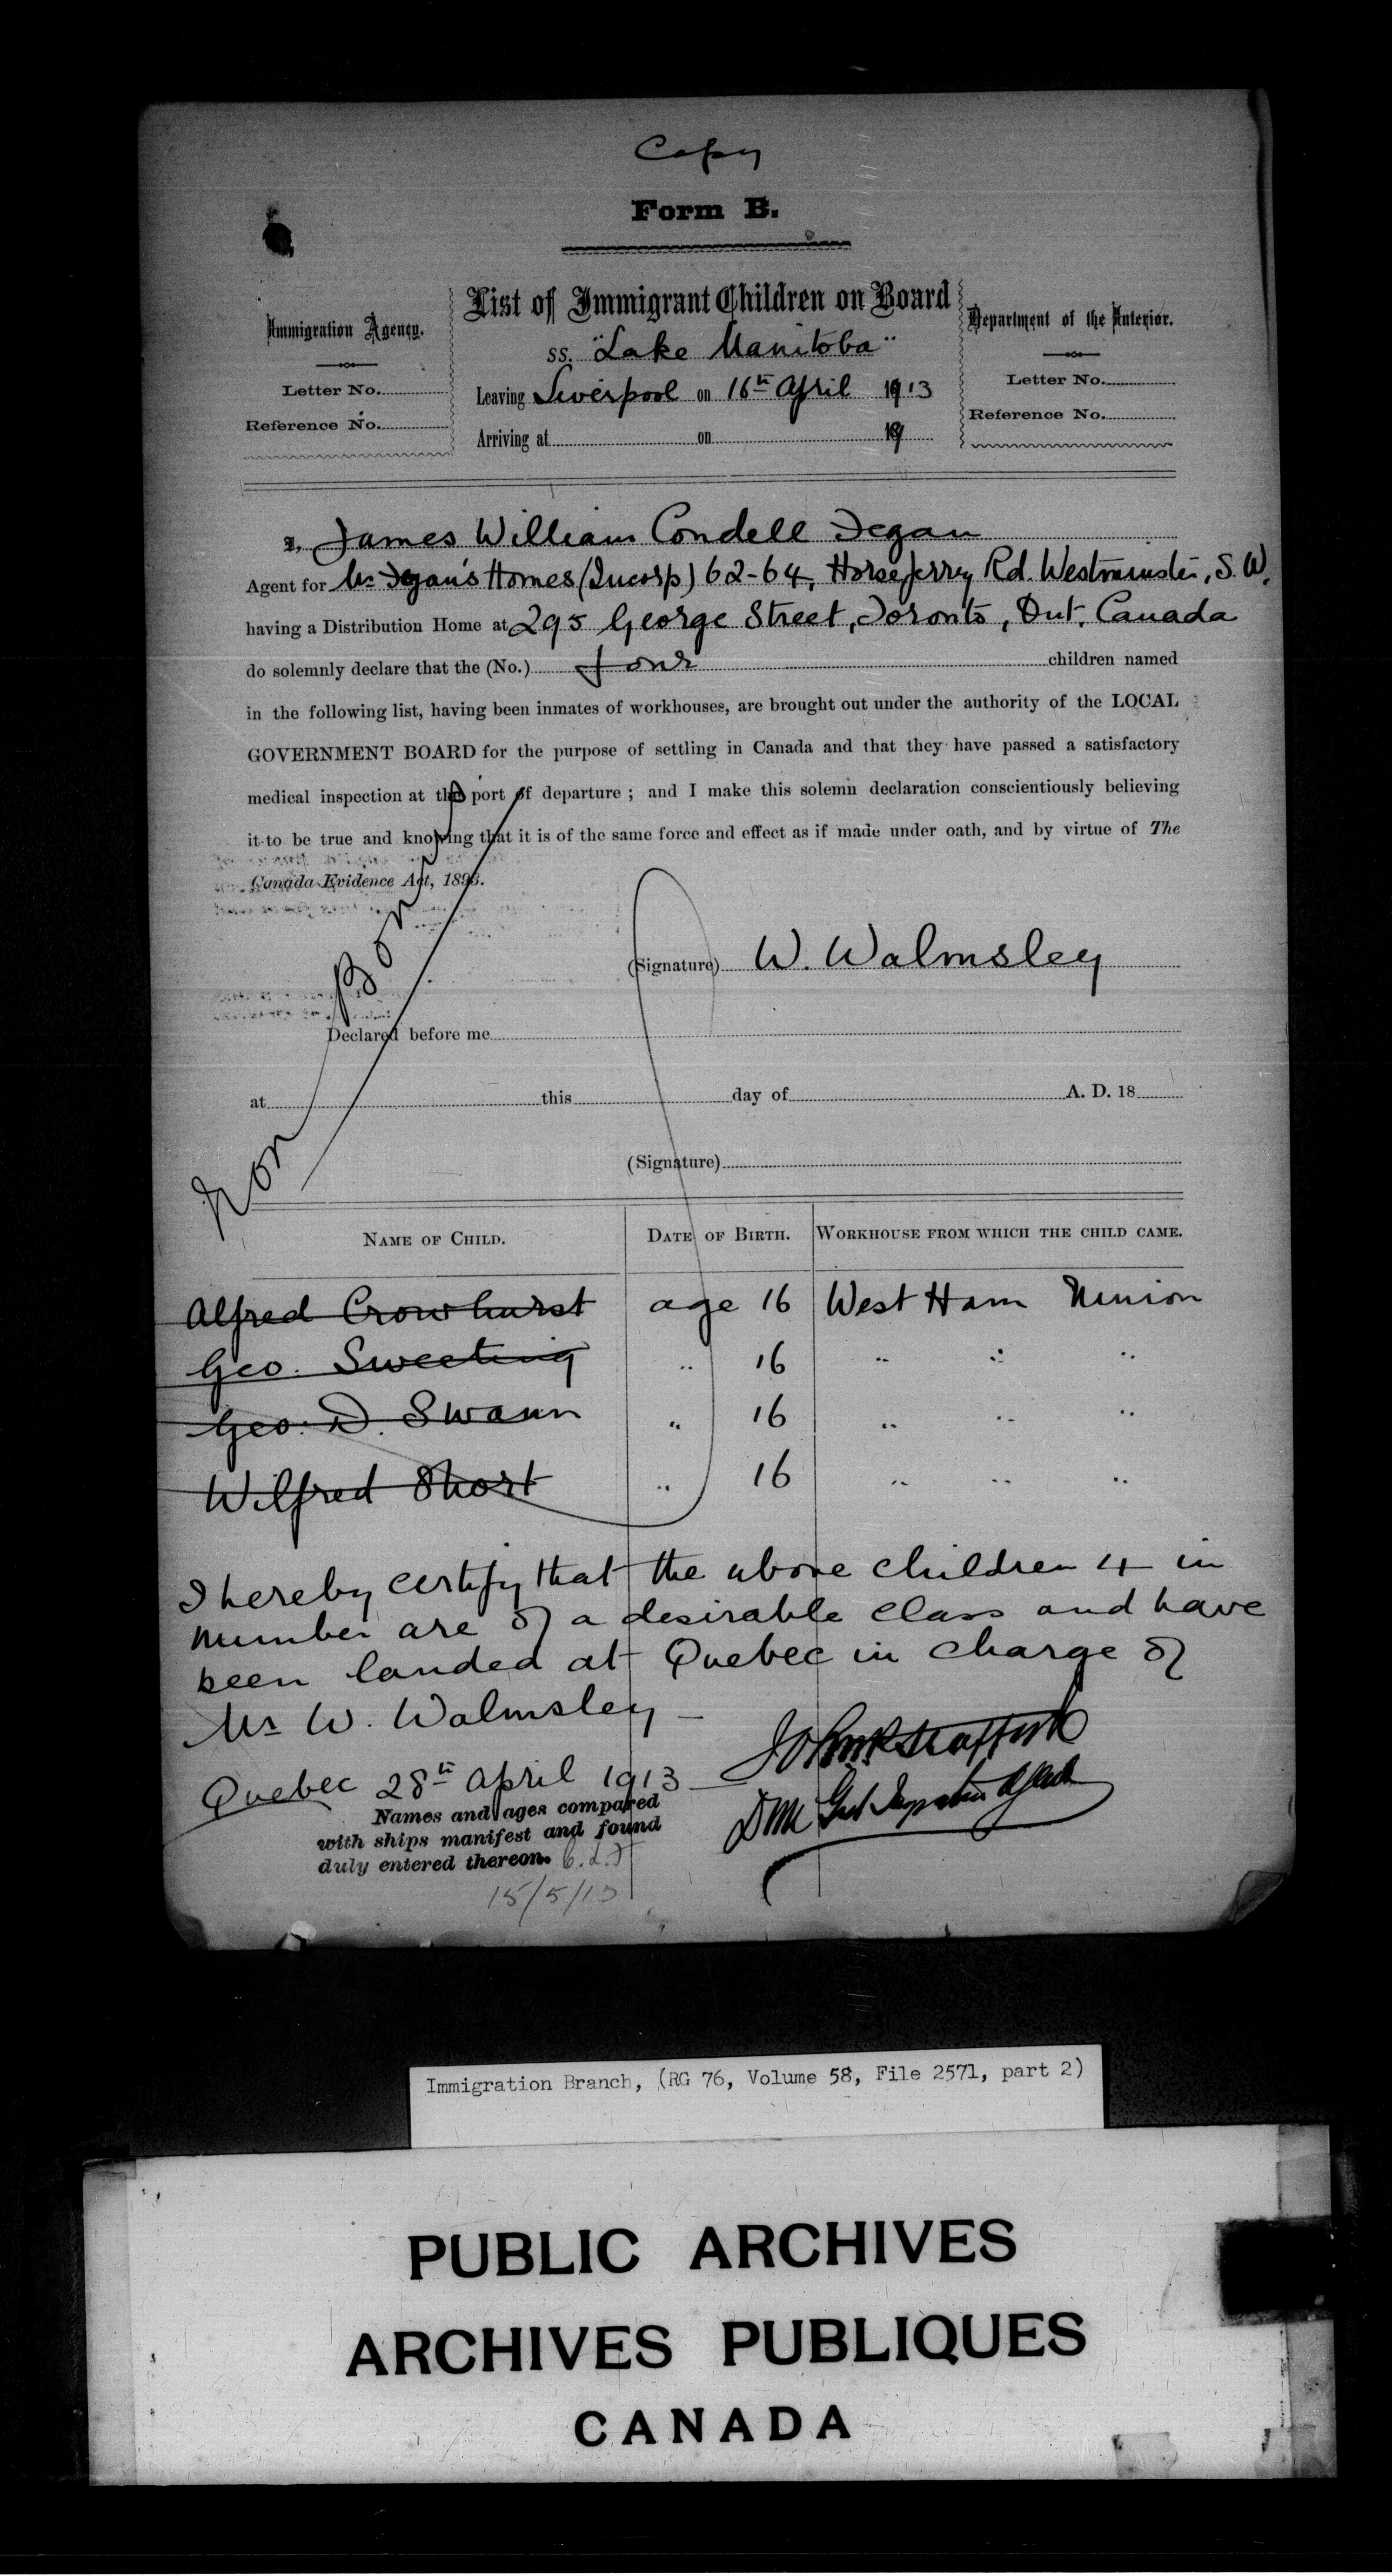 Copy
Form B.
List of Immigrant Children on Board
Immigration Agency.
Department of the Interior.
ss. "Lake Manitoba"
Letter No.
Letter No.
Leaving Liverpool on 16th April 1913
Reference No.
Reference No.
Arriving at on 19
I, James William Condell Fegan
Agent for Mr Fegan's Homes (Incorp) 62-64, Horseferry Rd. Westminster, S.W.
having a Distribution Home at 295 George Street, Toronto, Ont. Canada
do solemnly declare that the (No.) four children named
in the following list, having been inmates of workhouses, are brought out under the authority of the LOCAL
GOVERNMENT BOARD for the purpose of settling in Canada and that they have passed a satisfactory
medical inspection at the port of departure ; and I make this solemn declaration conscientiously believing
it to be true and knowing that it is of the same force and effect as if made under oath, and by virtue of The
Canada Evidence Act, 1893.
Non Bonused
(Signature) W. Walmsley
Declared before me
at this day of A. D. 18
(Signature)
NAME OF CHILD. DATE OF BIRTH. WORKHOUSE FROM WHICH THE CHILD CAME.
Alfred Crowhurst age 16 West Ham Union
Geo. Sweeting " 16 " " "
Geo. D. Swann " 16 " " "
Wilfred Short " 16 " " "
I hereby certify that the above children 4 in
number are of a desirable class and have
been landed at Quebec in charge of
Mr W. Walmsley –
Quebec 28th April 1913
Names and ages compared
with ships manifest and found
duly entered thereon.
15/5/13
Immigration Branch, (RG 76, Volume 58, File 2571, part 2)
PUBLIC ARCHIVES
ARCHIVES PUBLIQUES
CANADA